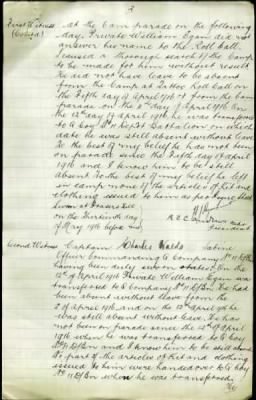 2
First Witness At the 6am parade on the following
(Contd) day Private William Egan did not
answer his name to the Roll Call.
I caused a thorough search of the Camp
to be made for him without result
He did not have leave to be absent
from the Camp at Tattoo Roll Call on
the Fifth day of April 1916 or from the 6am
parade on the 6th day of April 1916. On
the 12th day of April 1916 he was transferred
to Coy Depot Battalion on which
date he was still absent without leave
To the best of my belief he has not been
on parade since the Fifth day of April
1916 and I know him to be still
absent. To the best of my belief he left
in camp none of the articles of Kit and
clothing issued to him as per
Sworn at
on the Thirteenth day
of May 1916 before me
President
Second Witness Captain Charles
Officer Commanding Company
having been duly sworn states:- On the
12th of April 1916 Private William Egan was
transferred to Company Bn. He had
been absent without leave from the
5 of April 1916, and on the 12th April 1916 he
was still absent without leave. He has
not been on parade since the 12th of April
1916 when he was transferred to Coy
Bn and I know him to be still absent
No part of the articles of kit and clothing
issued to him were handed over to Coy
Bn when he was transferred.